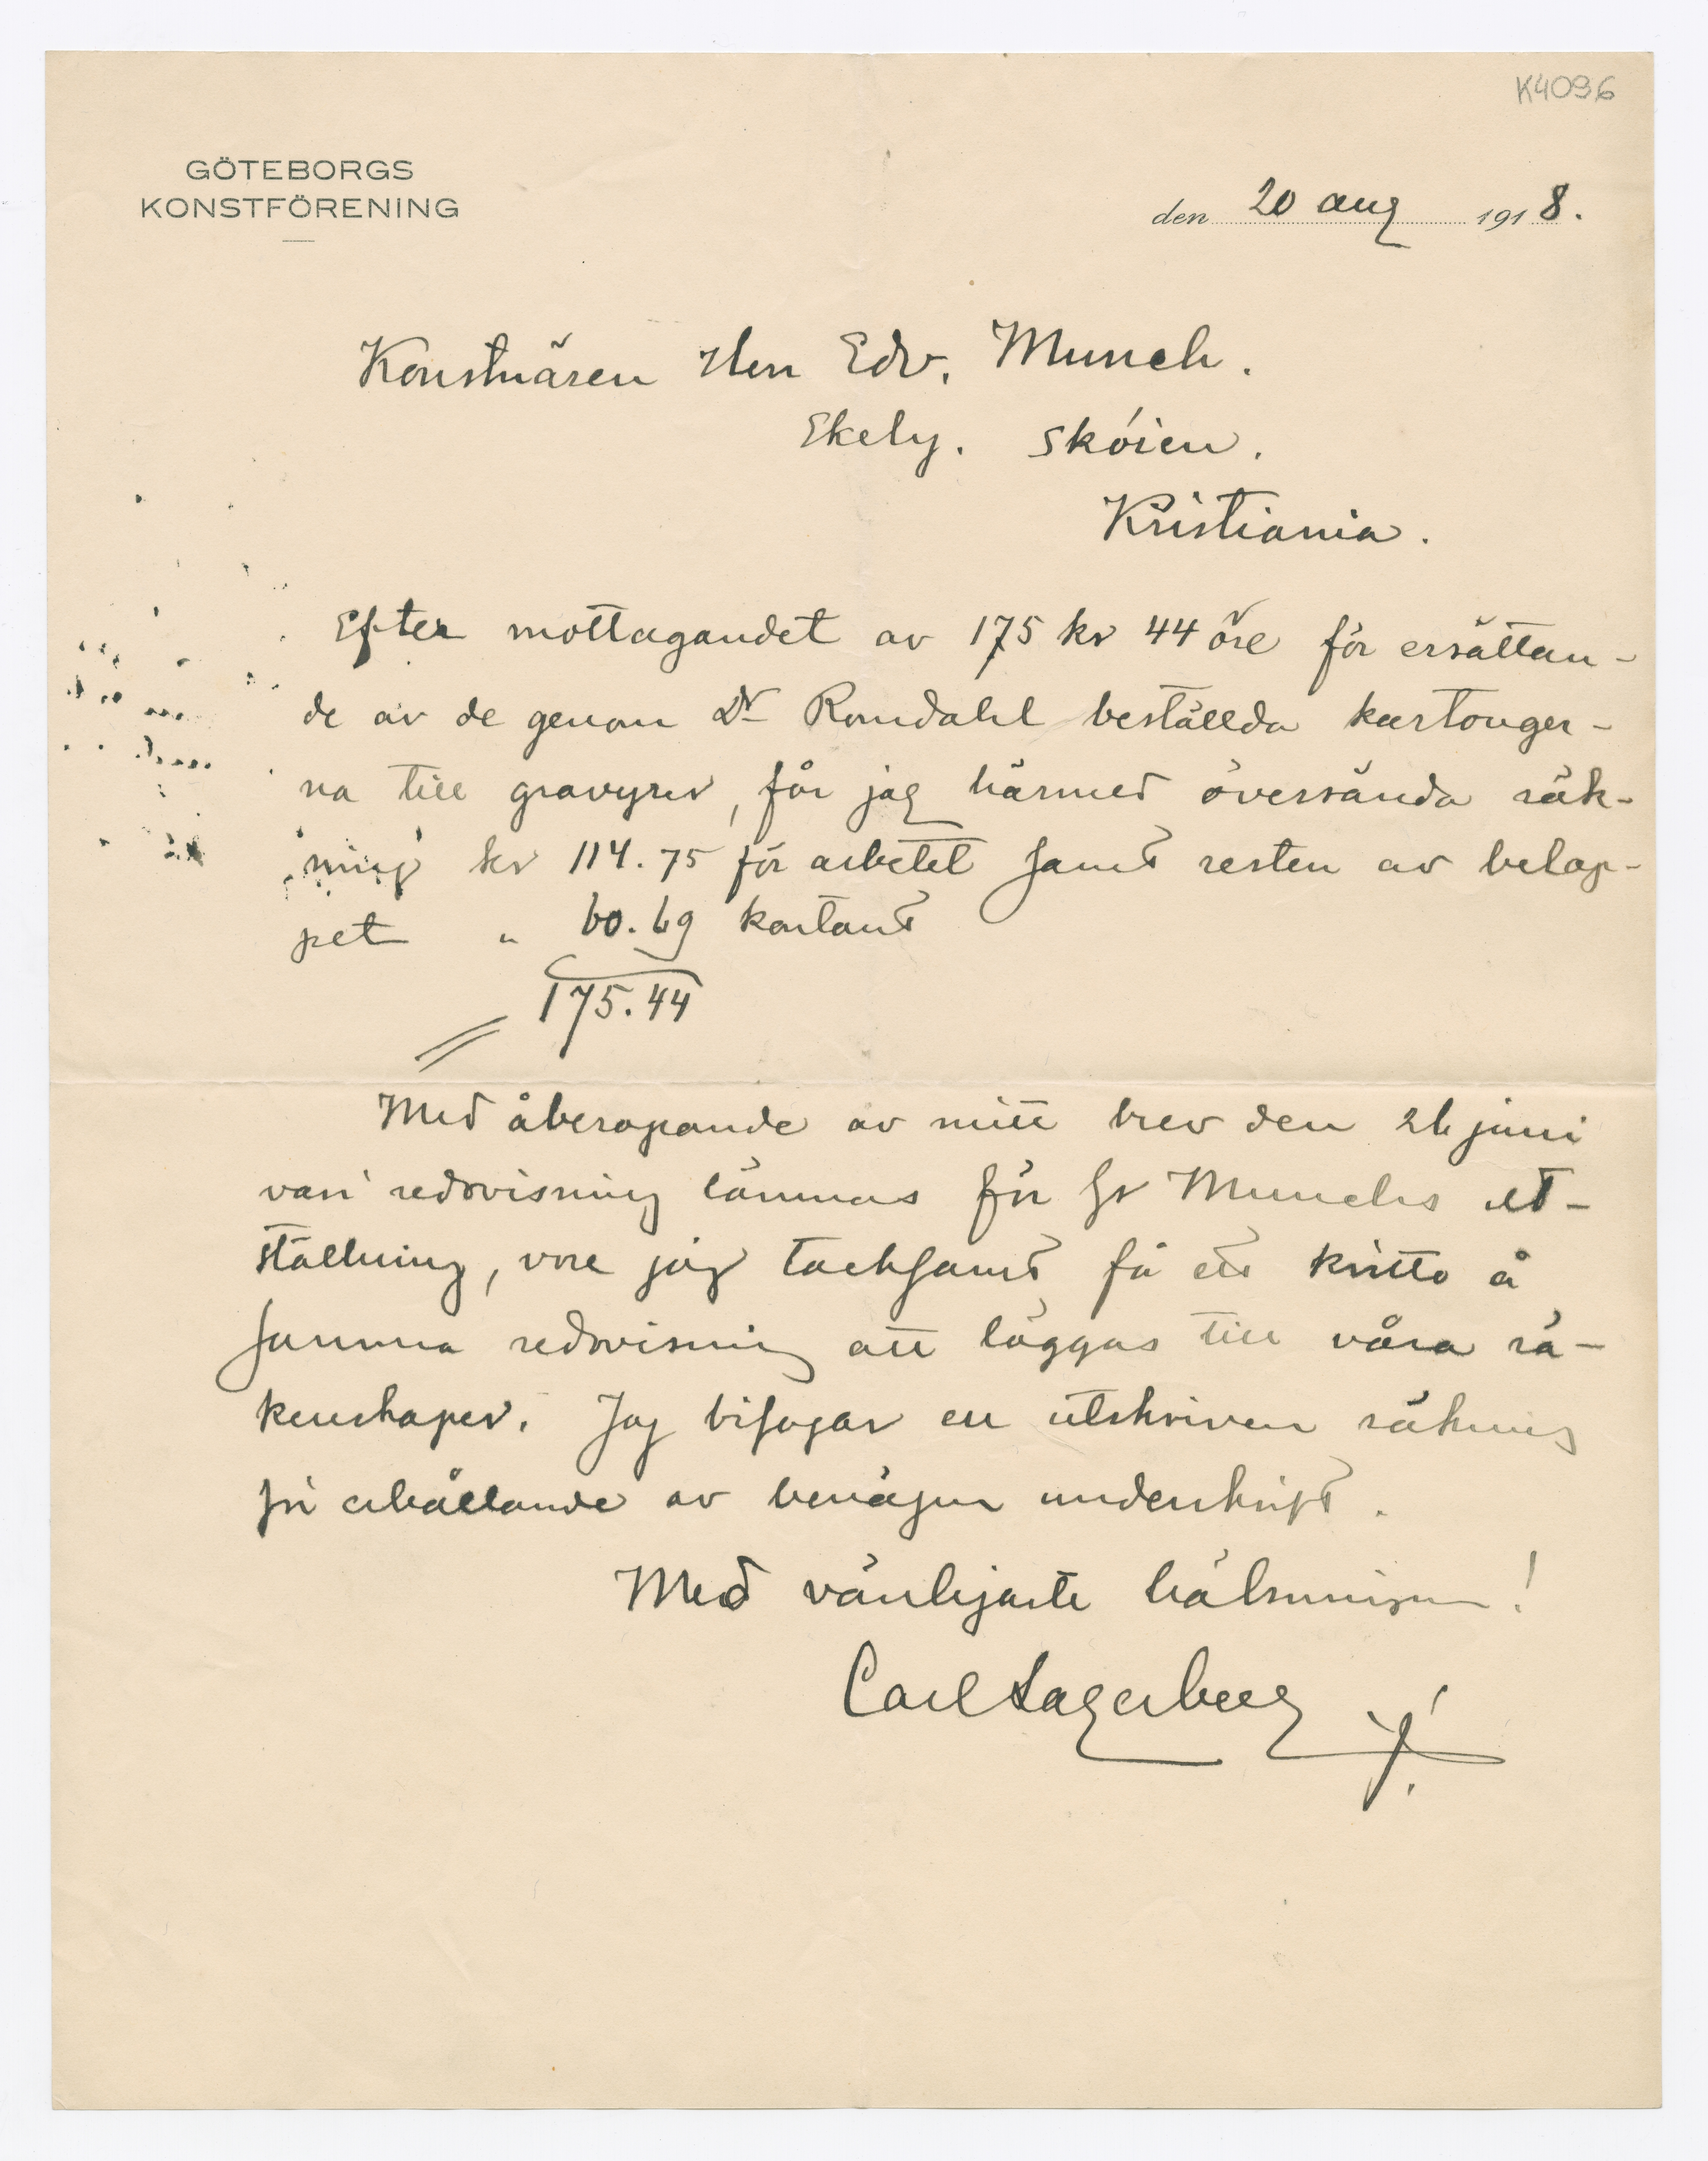 K4096
GÖTEBORGS
KONSTFÖRENING
den 20 aug 1918.
Konstnären Herr Edv. Munch.
Ekely. Skóien.
Kristiania.
Efter mottagandet av 175 kr 44 öre för ersättan-
de av de genom Dr Romdahl beställda kartonger-
na till gravyrer, får jag härmed översända räk-
ning kr 114.75 för arbetet samt resten av belop-
pet " 60.69 kontant
175.44
Med åberopande av mitt brev den 26 juni
vari redovisning lämnas för Hr Munchs ut-
ställning, vore jag tacksamt få ett kvitto å
samma redovisning att läggas till våra rä-
kenskaper. Jag bifogar en utskriven räkning
för erhållande av benägen underskrift.
Med vänligaste hälsningar!
Carl Lagerberg